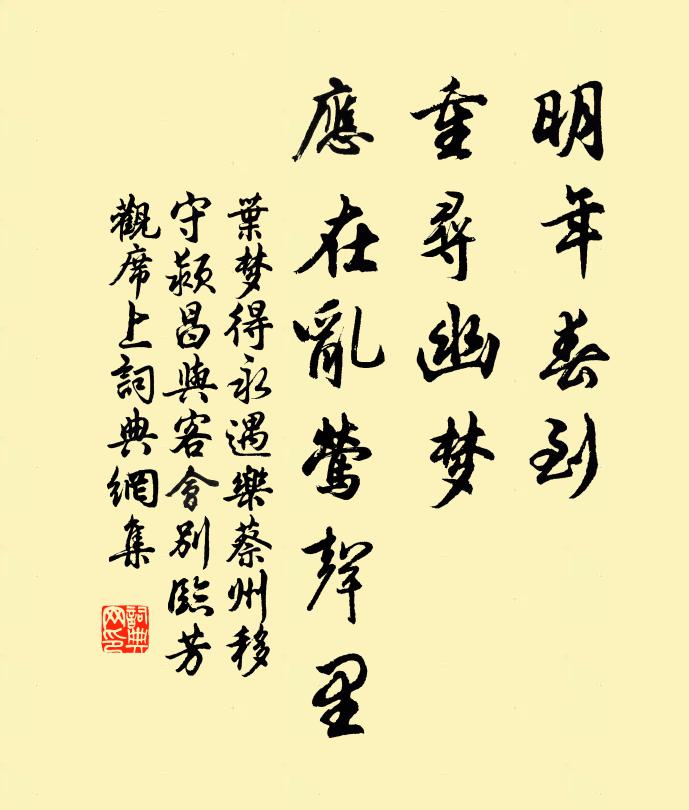 明年春到
重尋幽梦
應在亂鶯聲里
葉梦得永遇樂蔡州移
守潁昌與客會別臨芳
觀席上詞典網集
詞典網印